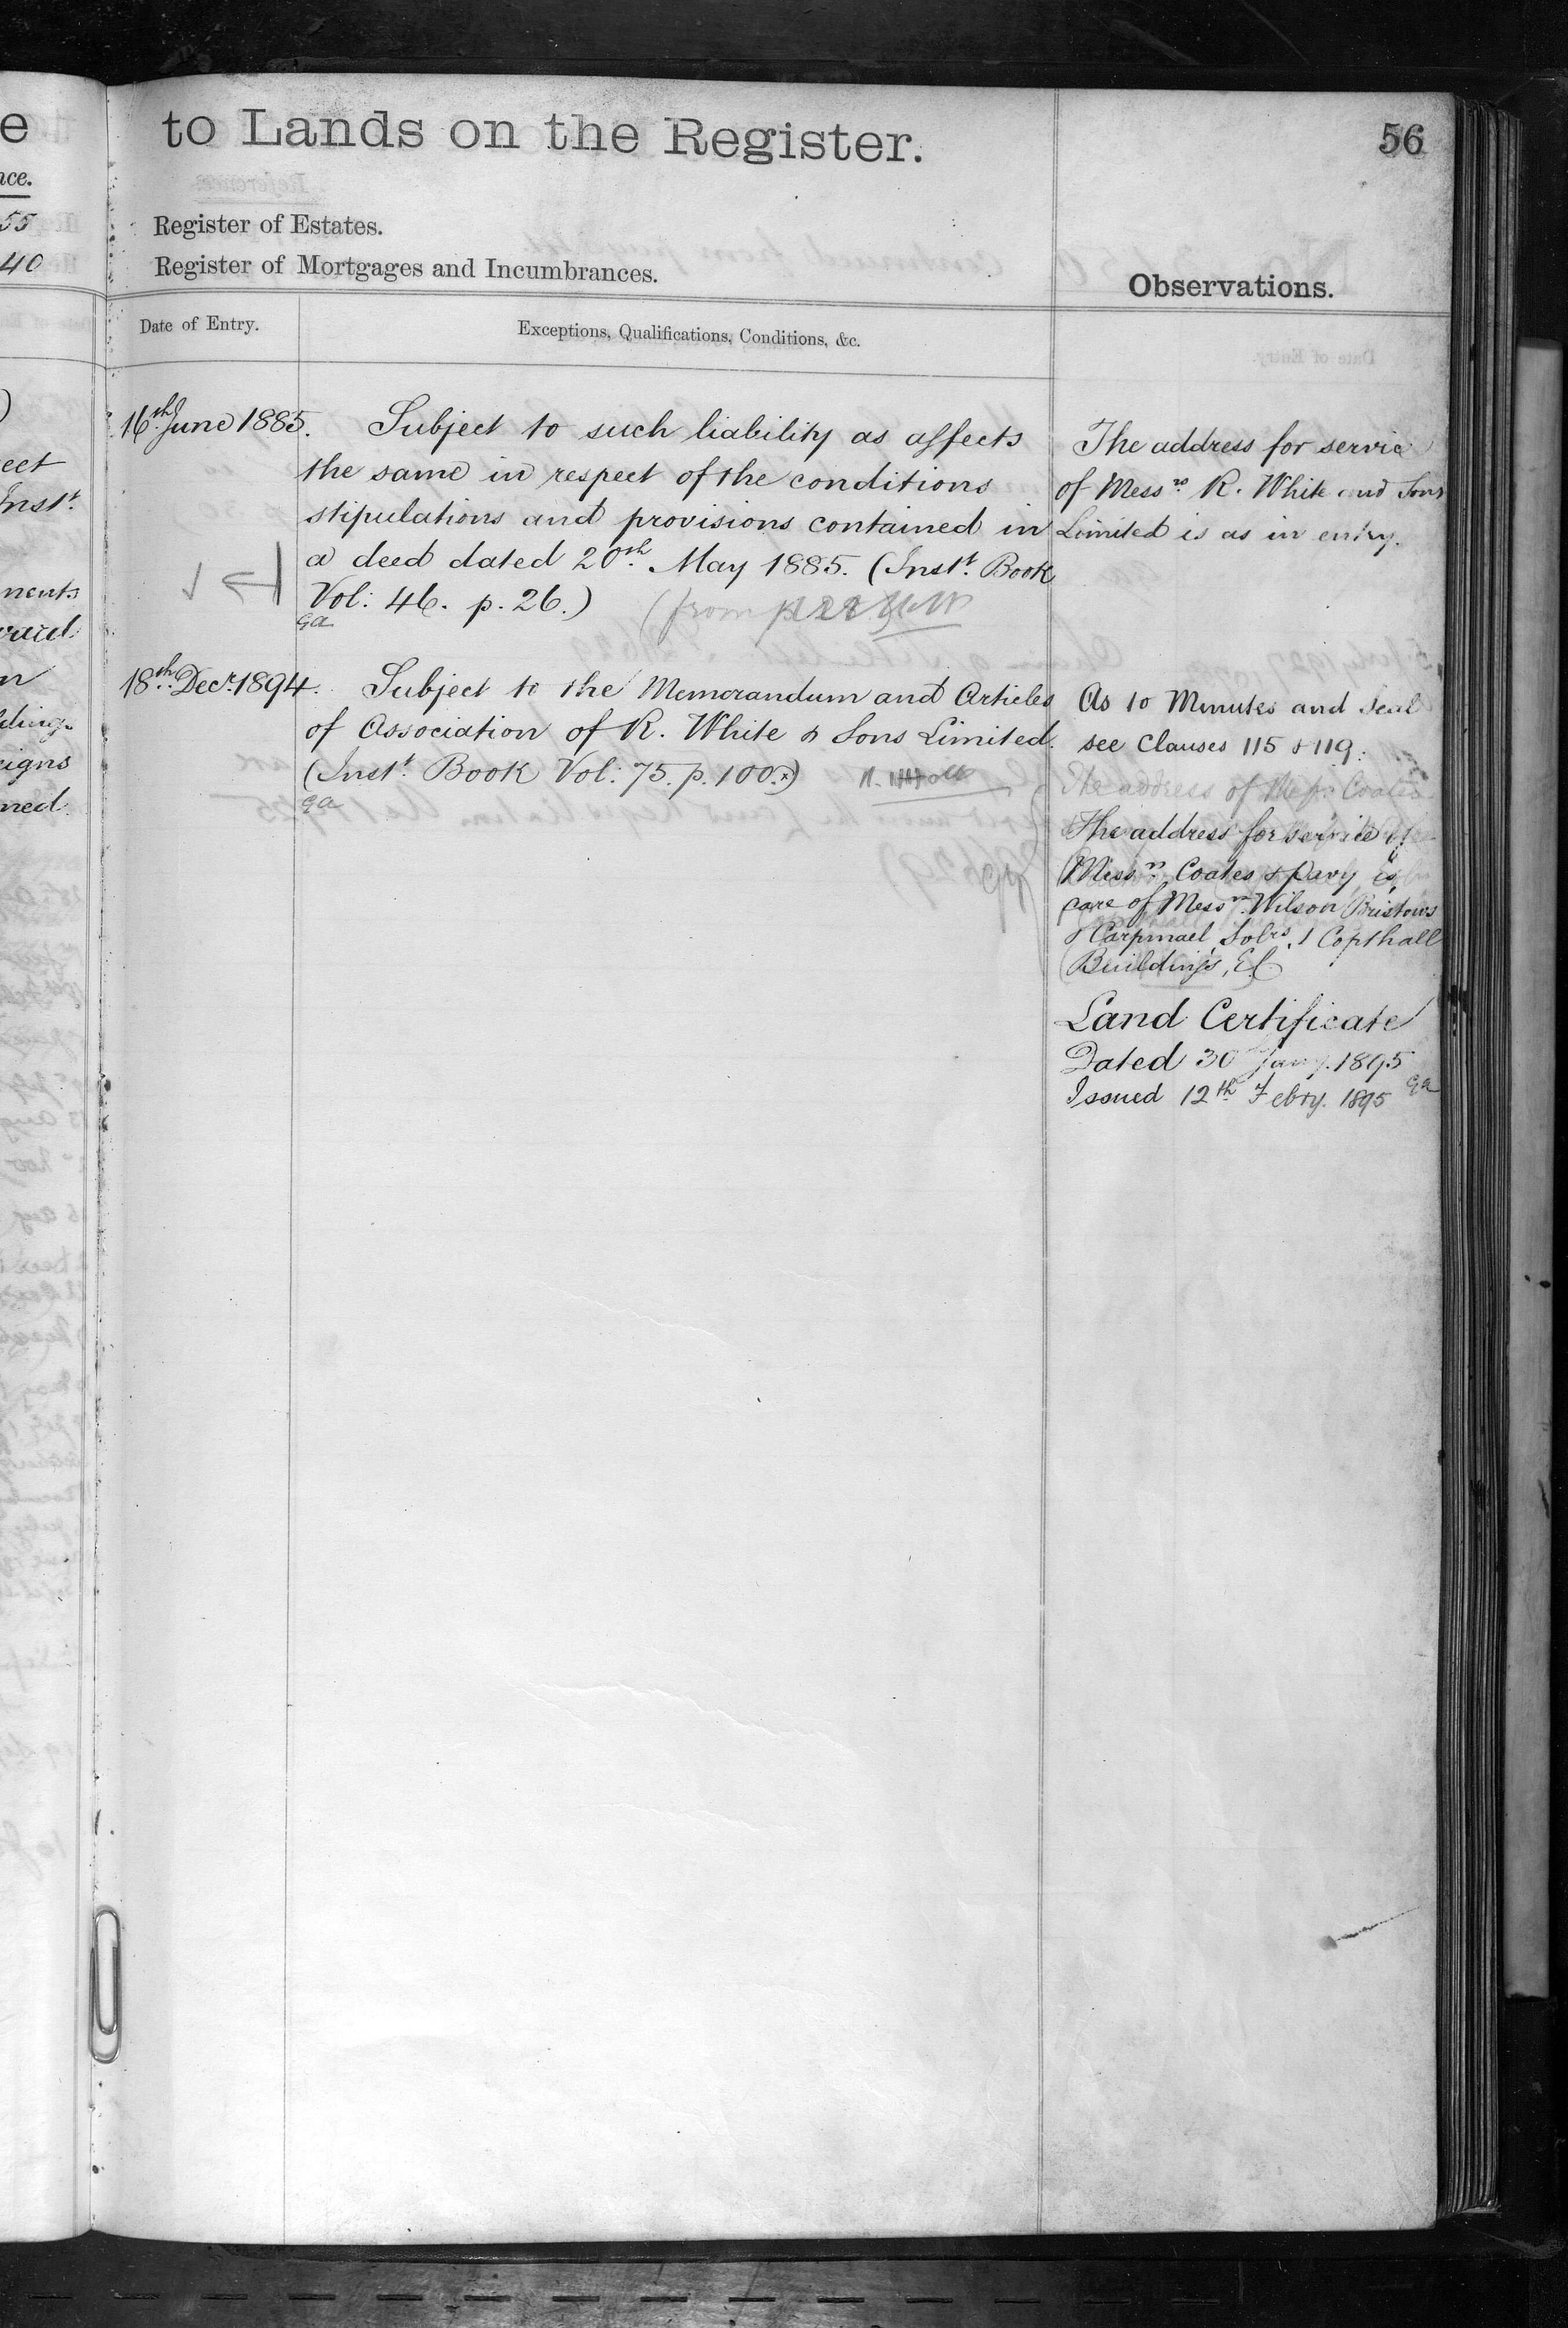 e
nce.
55
40
ect
Inst.
nents
n
igns
ned.
to Lands on the Register.
56
Register of Estates.
Register of Mortgages and Incumbrances.
Observations.
Date of Entry.
Exceptions, Qualifications, Conditions, &c.
16th June 1885.
Subject to such liability as affects
the same in respect of the conditions
stipulations and provisions contained in
a deed dated 20th. May 1885. (Inst. Book
Vol: 46. p. 26.) (from
ga
18th. Decr. 1894.
Subject to the Memorandum and Articles
of Association of R. White & Sons Limited.
(Inst. Book Vol: 75. p. 100.)
ga
The address for service
of Messrs R. White and Sons
Limited is as in entry.
As to Minutes and Seal
see Clauses 115 & 119.
The address of Messrs Coates
The address for service of
Messrs. Coates & Pavy is
care of Messrs. Wilson Bristows
& Carpmael, Solrs. 1 Copthall
Buildings, E.C
Land Certificate
Dated 30 Jany. 1895
Issued 12th Febry. 1895 ga